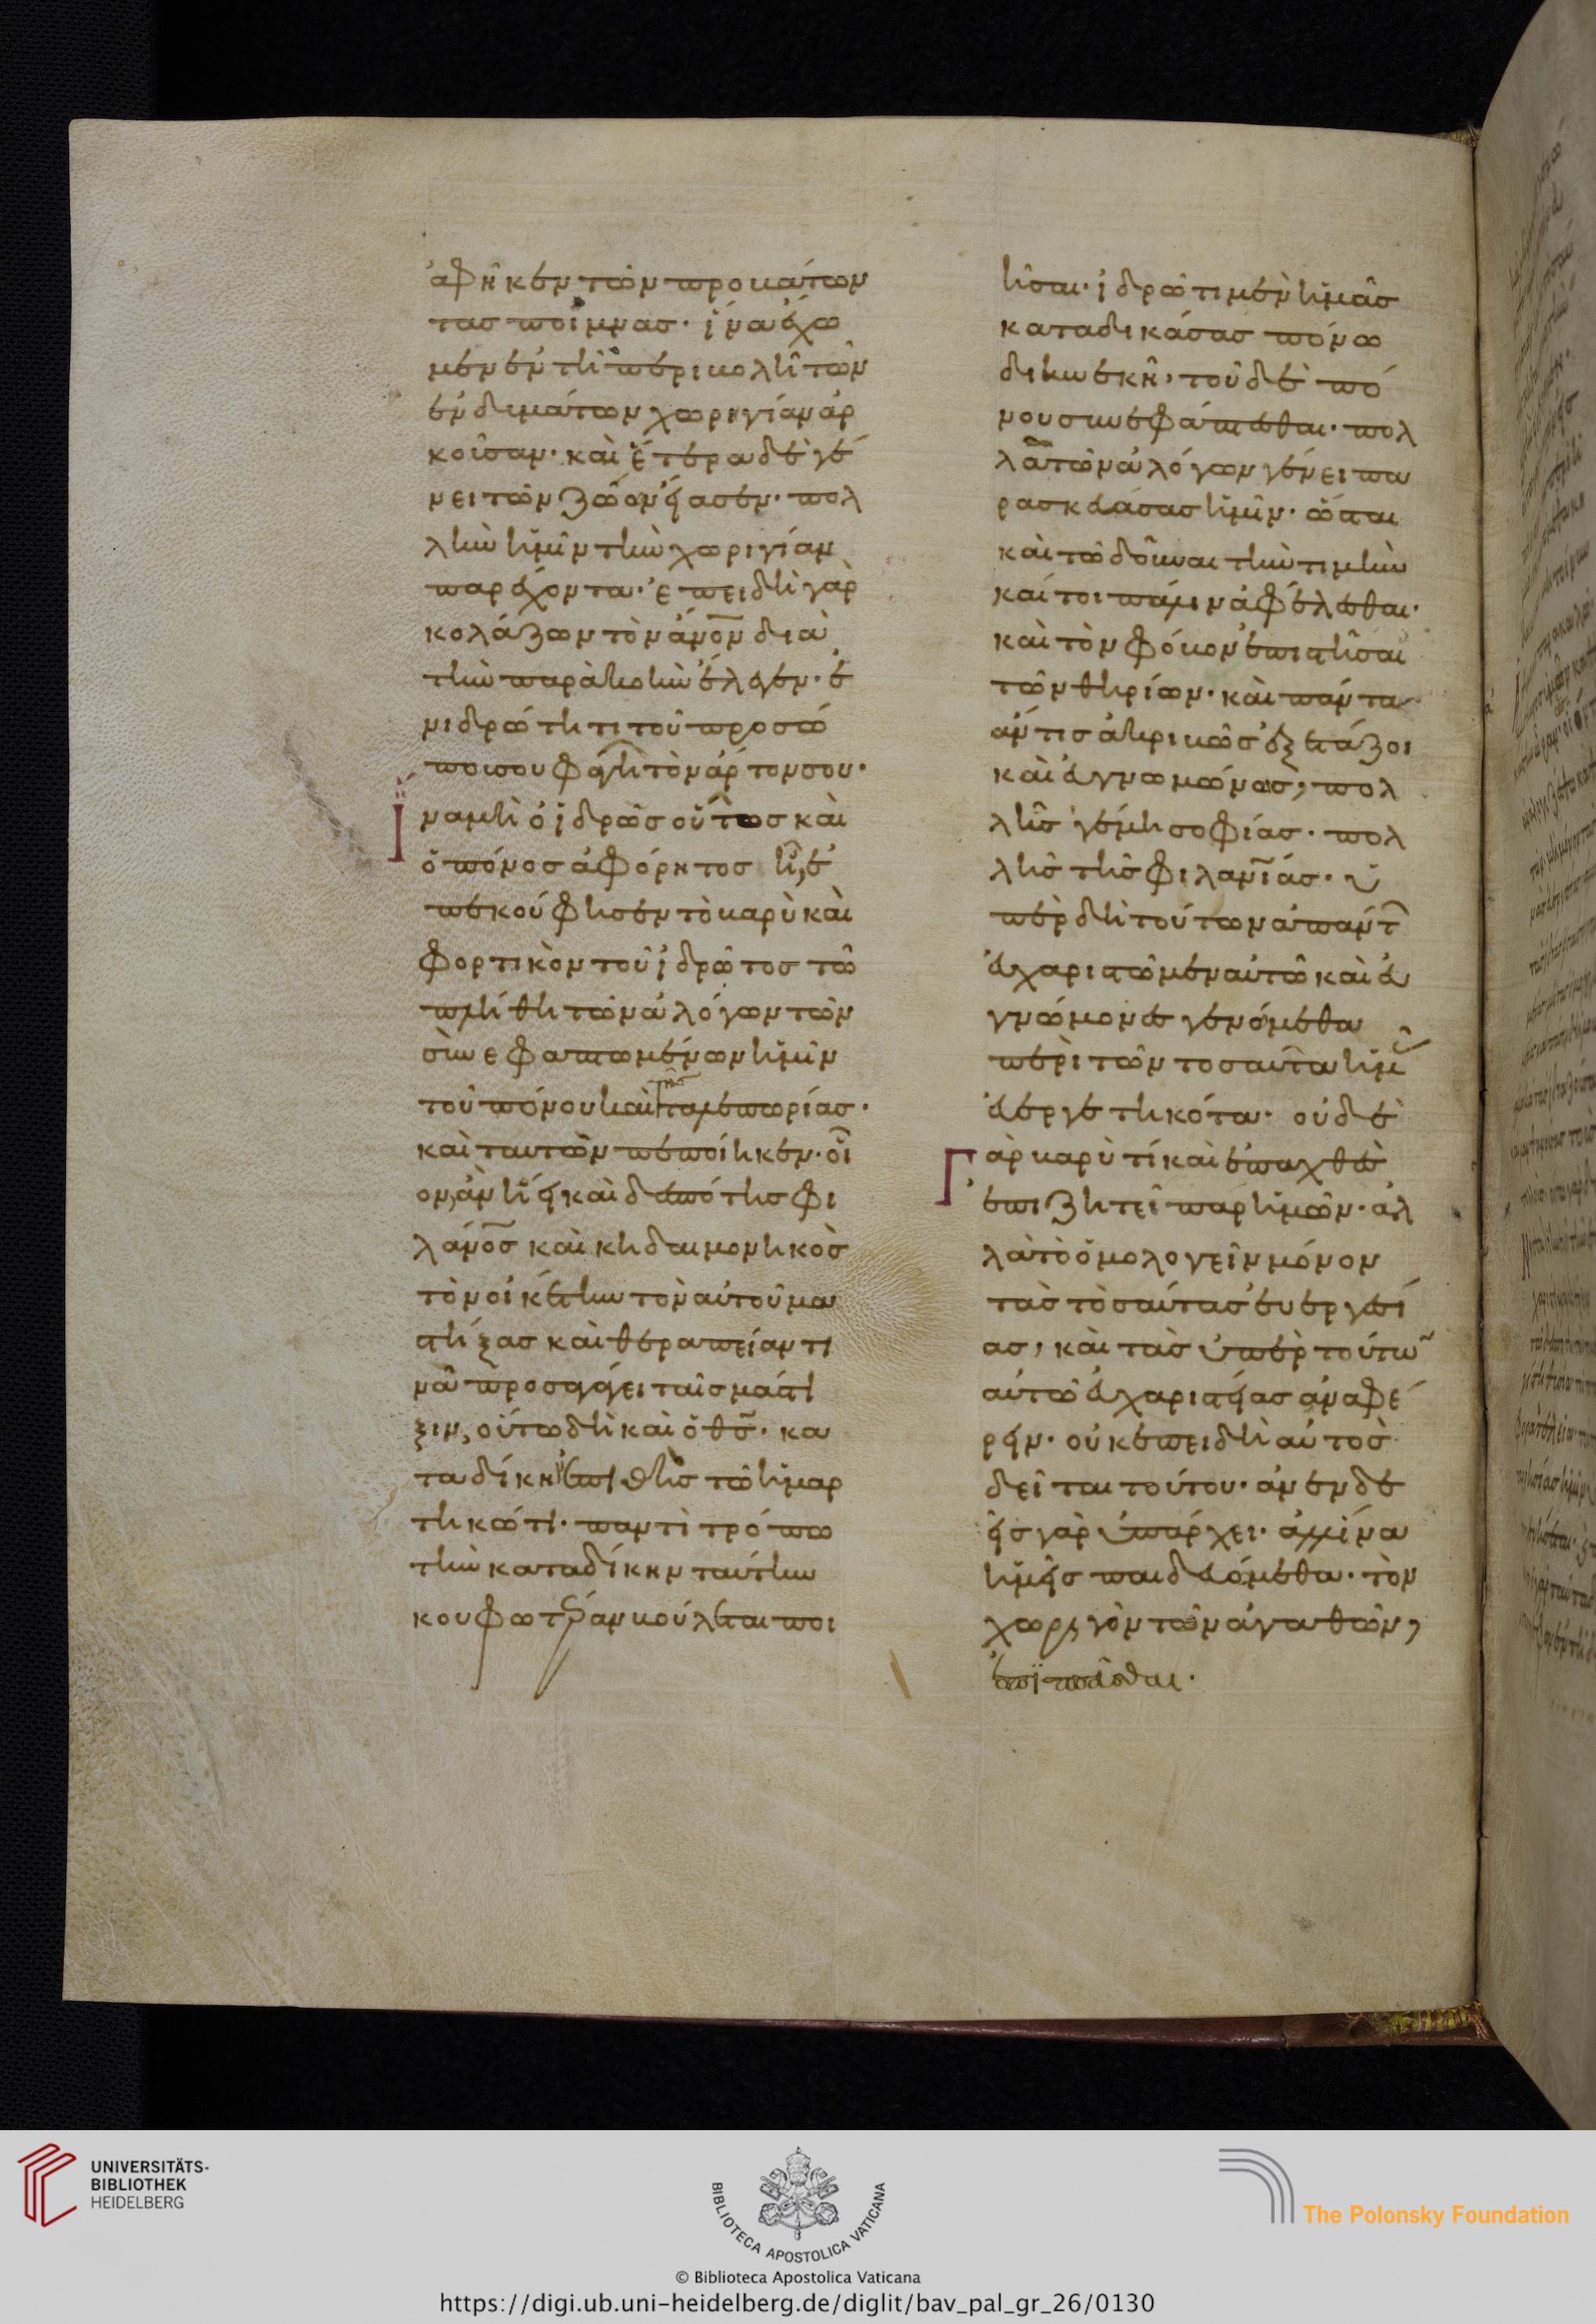 ἀφῆκεν τῶν προβάτων
τας ποίμνας· ἵνα ἔχω
μεν ἐν τῆ περιβολῆ τῶν
ἐνδυμάτων χωρηγίαν ἀρ
κοῦσαν· καὶ ἕτερα δὲ γέ
νει τῶν ζώον εἴασεν· πολ
λὴν ἡμῖν τὴν χωριγίαν
παρέχοντα· ἐπειδὴ γὰρ
κολάζων τὸν ἄνον διὰ
τὴν παρακοὴν ἔλεγεν· ἐ
νιδρώτητι τοῦ προσώ
ποισου φάγη τὸν ἄρτον σου·
ἵ
ναμὴ ὁ ἱδρῶς οὕτος καὶ
ὁ πόνος ἀφόρητος ἦ, ἐ
πεκούφησεν τὸ βαρὺ καὶ
φορτικὸν τοῦ ἱδρῶτος τῶ
πλήθη τῶν ἀλόγων τῶν
συνεφαπτωμένων ἡμῖν
τοῦ πόνου καὶ τῆς ταλεπωρίας·
καὶ ταυτὸν πεποίηκεν· οἷ
ον, ἂν ἦ εἰ καὶ δεσπότης φι
λάνος καὶ κηδαιμονηκὸς
τὸν οἰκέτην τὸν αὐτοῦ μα
στήξας καὶ θεραπείαν τι
νὰ προσαγάγει ταῖς μάστι
ξιν, οὕτω δὴ καὶ ὁ θς· κα
ταδίκην ἐπιθεὶς τῶ ἡμαρ
τηκώτι· παντὶ τρόπω
τὴν καταδίκην ταύτην
κουφωτέραν βούλεται ποι
ῆσαι· ἱδρῶτι μὲν ἡμᾶς
καταδικάσας πόνω
διηνεκῆ· τοῦ δὲ πό
νου συνεφάπτεσθαι· πολ
λὰ τῶν ἀλόγων γένει πα
ρασκευάσας ἡμῖν· ὥσται
καὶ τῶ δοῦναι τὴν τιμὴν
καίτοι πάλιν ἀφέλεσθαι·
καὶ τὸν φόβον ἐπιστῆσαι
τῶν θηρίων· καὶ πάντα
ἄν τις ἀκριβῶς ἐξετάζοι
καὶ εὐγνωμώνως, πολ
λῆς γέμη σοφίας· πολ
λῆς τῆς φιλανίας· ὑ
πὲρ δὴ τούτων ἁπάντ
εὐχαριστῶμεν αὐτῶ καὶ εὐ
γνώμονες γενόμεθα
περὶ τῶν τοσαῦτα ἡμ
εὐεργετηκότα· οὐδὲ
Γ
ὰρ βαρύ τί καὶ ἐπαχθὲς
ἐπιζητεῖ παρ ἡμῶν· ἀλ
λὰ τὸ ὁμολογεῖν μόνον
τὰς τοσαύτας ἐυεργεσί
ας, καὶ τὰς ὑπὲρ τούτω
αὐτῶ εὐχαριστείας ἀναφέ
ρειν· οὐκ ἐπειδὴ αὐτὸς
δεῖται τούτου· ἀνενδε
εῖς γὰρ ὑπάρχει· ἀλλ ἵνα
ἡμεῖς παιδευόμεθα· τὸν
χωρηγὸν τῶν ἀγαθῶν,
ἐπισπᾶσθαι·
UNIVERSITÄTS-
BIBLIOTHEK
HEIDELBERG
BIBLIOTECA APOSTOLICA VATICANA
The Polonsky Foundation
© Biblioteca Apostolica Vaticana
https://digi.ub.uni-heidelberg.de/diglit/bav_pal_gr_26/0130